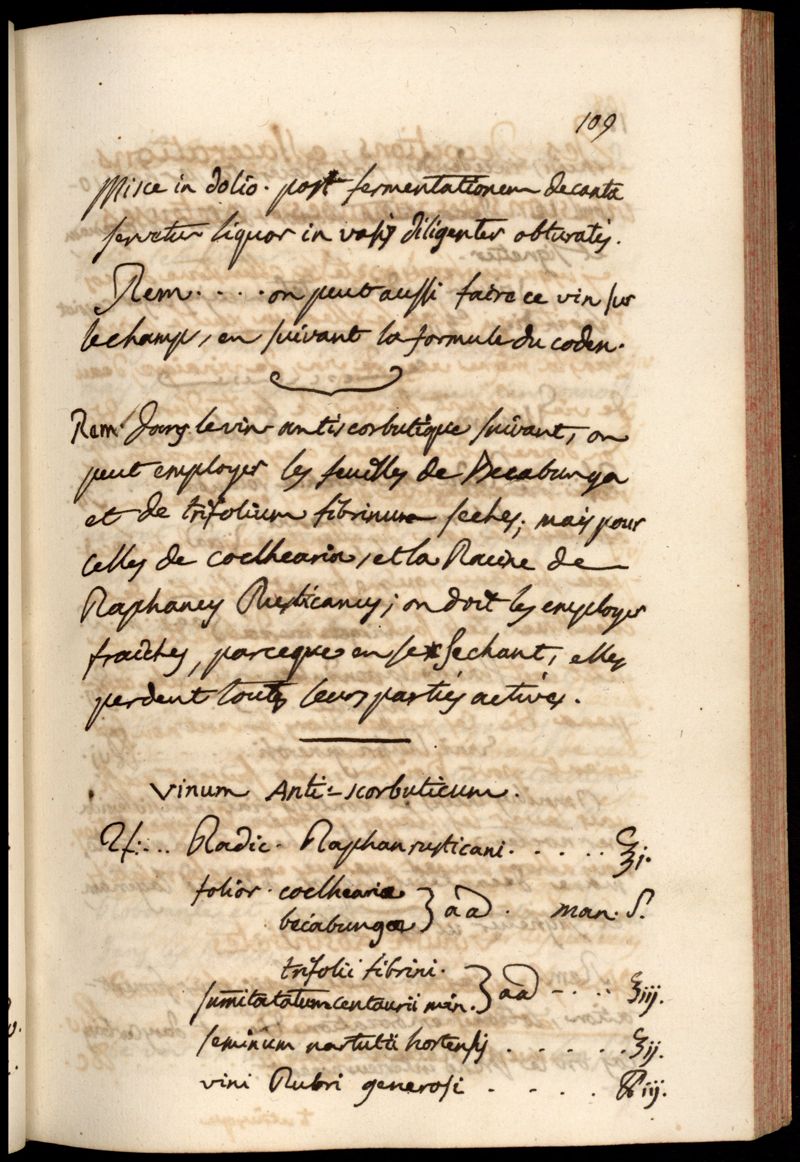 109
Misce in dolio. post fermentationem decanta
servetur liquor in vasis diligenter obturatis.
Rem.... on peut aussi faire ce vin sur
lechamp, en suivant la formule du codex.
Rem. Dans le vin antiscorbutique suivant, on
peut employer les feuilles de Becabunga
et de trifolium fibrinum seches; mais pour
celles de coclhearia, et la Racine de
Raphanus Rusticanus; on doit les employer
fraiches, parceque en se sechant, elles
perdent toutes leurs parties actives.
Vinum Anti-scorbuticum.
♃:... Radic. Raphan rusticani. .... ℥j.
folior. coclheariæ
becabungæ } aa . man. S.
trifolii fibrini.
sumitatatum centaurii min. } aa -... ℥iij.
seminum nasturtii hortensis ...... ℥ij.
vini Rubri generosi - .... ℔iij.